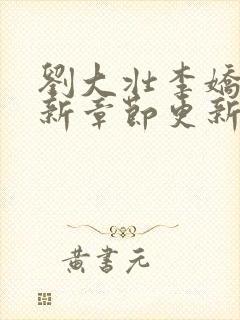 劉大壯李嬌
新章節更新
黃書元